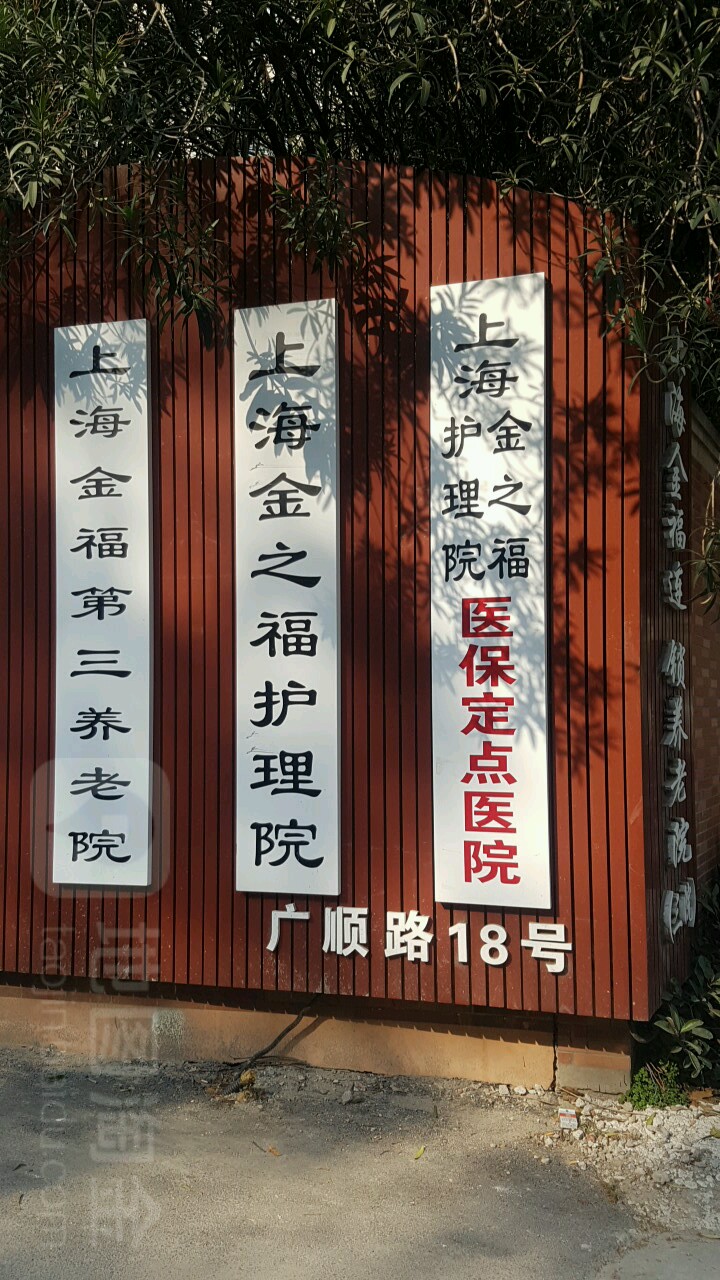 上海金福第三养老院
上海金之福护理院
上海金之福护理院
医保定点医院
广顺路18号
海金福连锁养老院
地图淘金